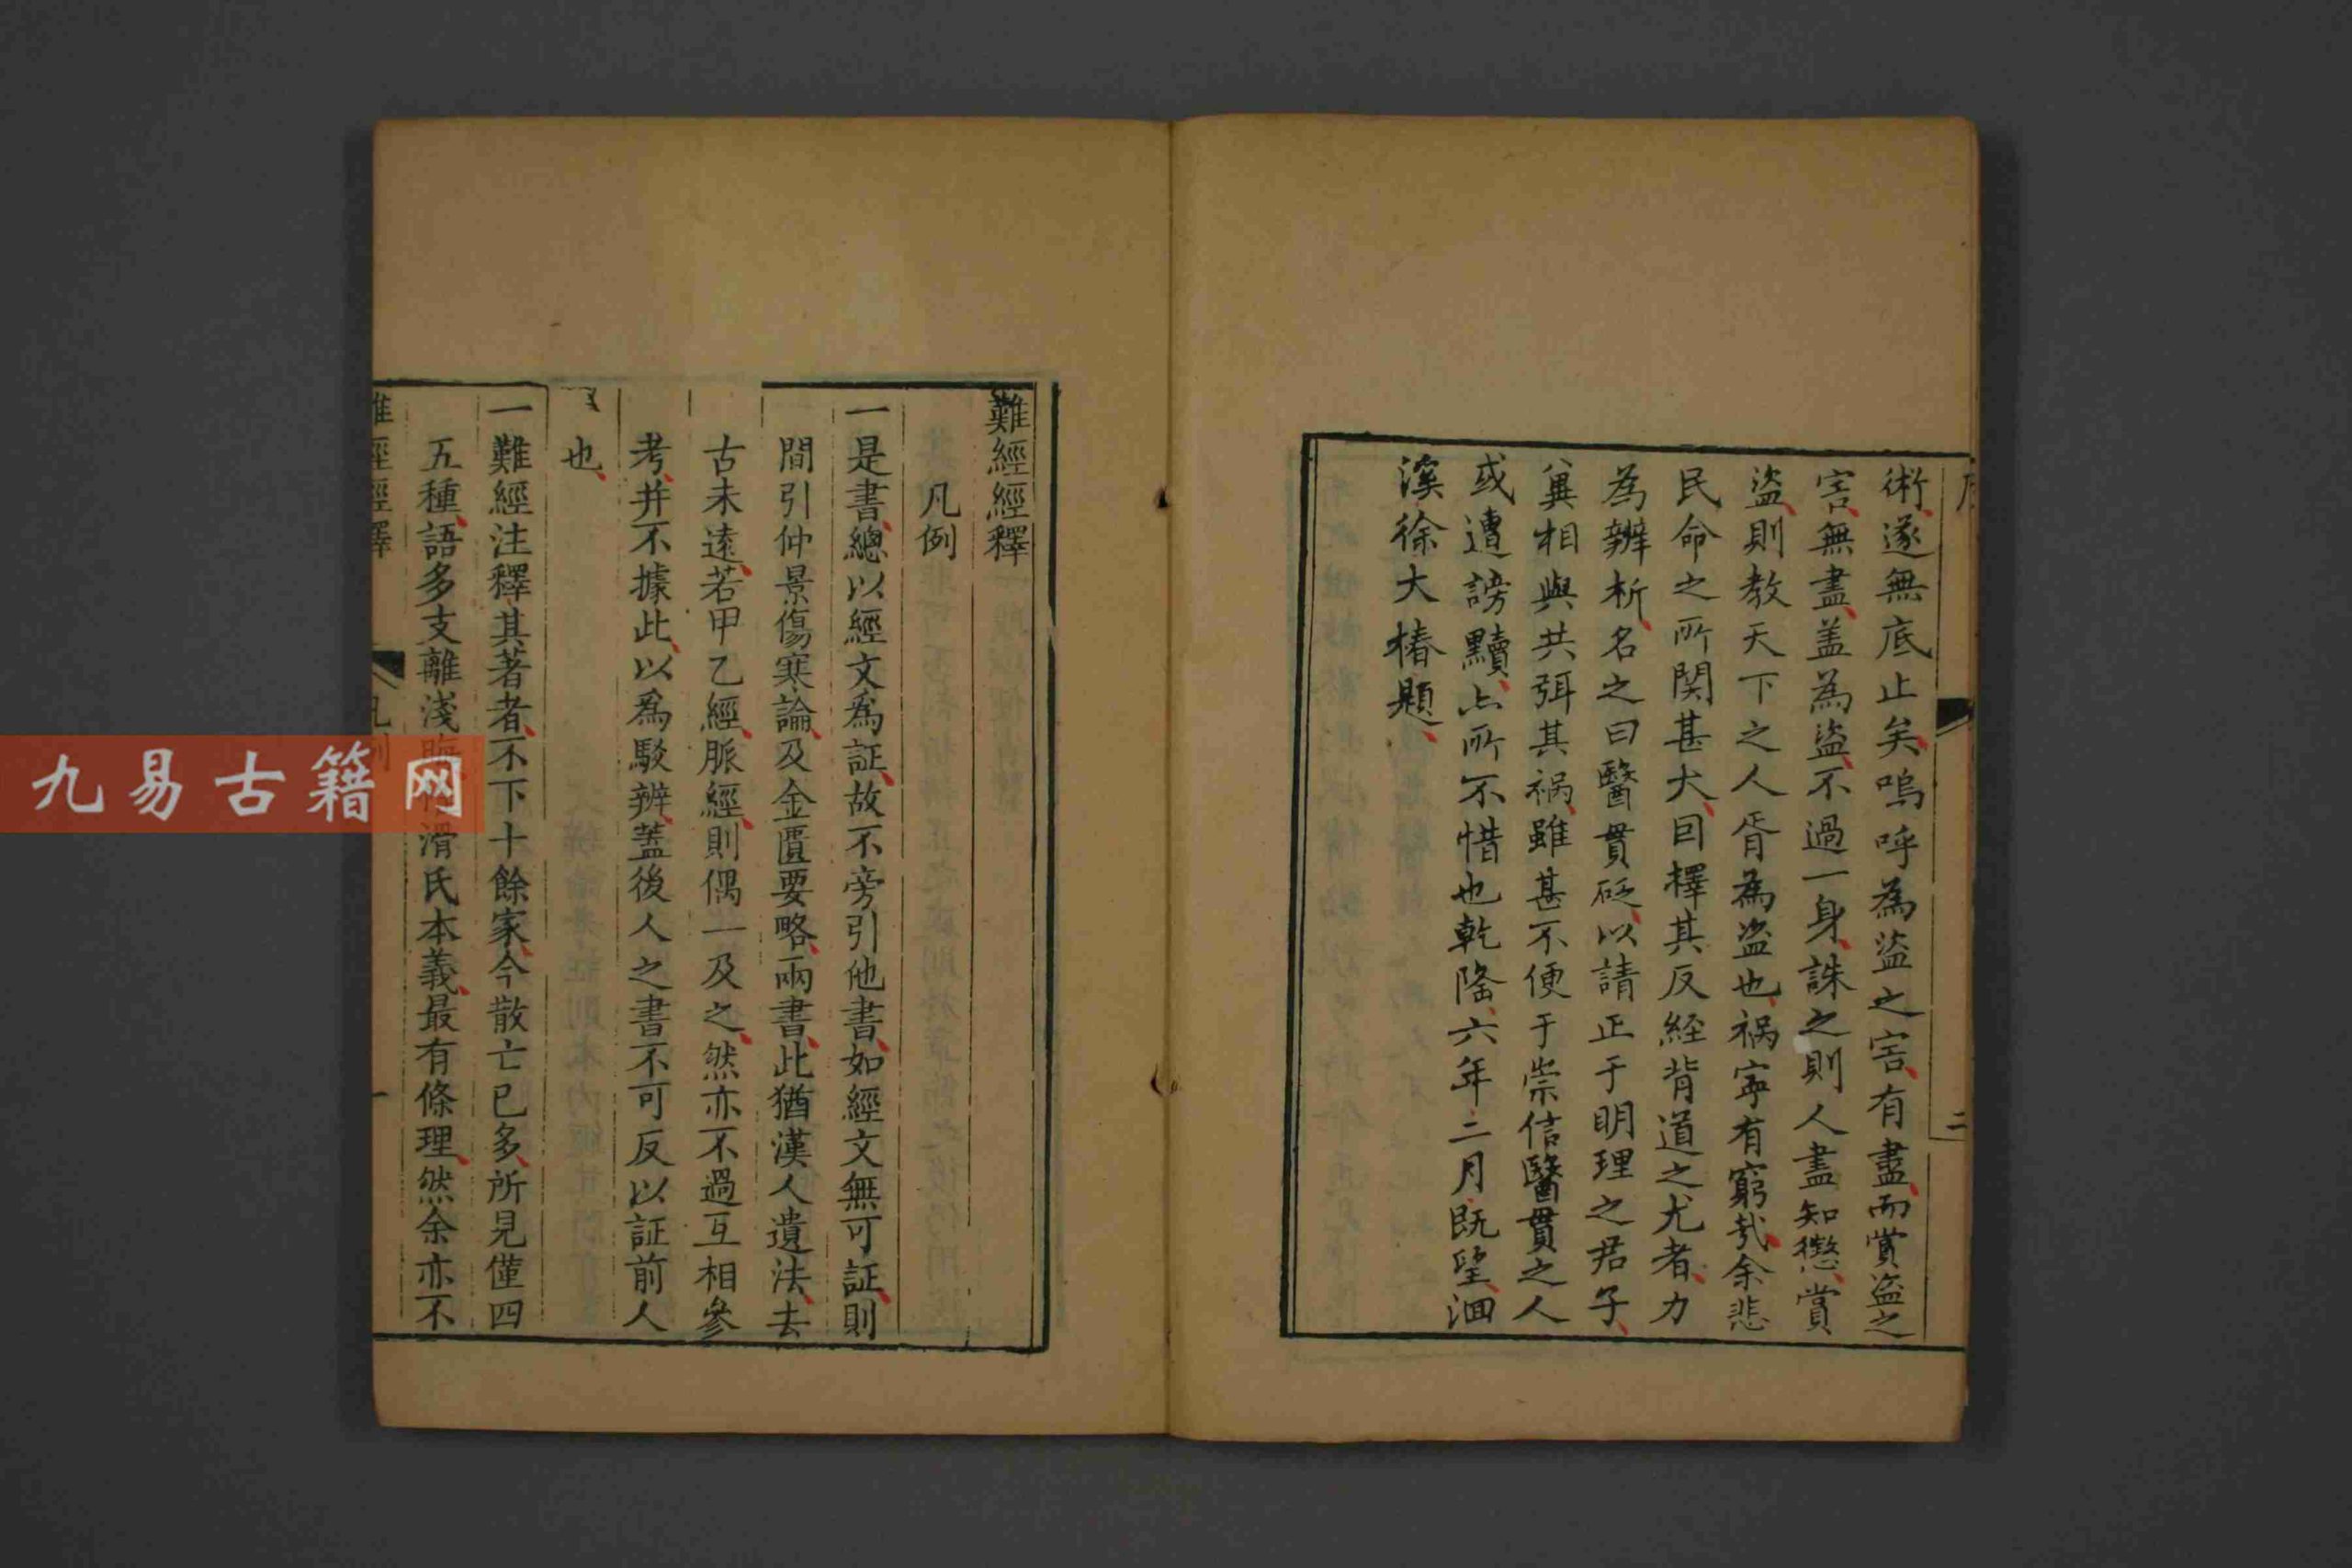 序
二
術遂無底止矣嗚呼為盜之害有盡而賞盜之
害無盡盖為盜不過一身誅之則人盡知懲賞
盜則教天下之人胥為盜也禍寧有窮哉余悲
民命之所関甚大因擇其反経背道之尤者力
為辨析名之曰醫貫砭以請正于明理之君子
兾相與共弭其禍雖甚不便于崇信醫貫之人
或遭謗黷亦所不惜也乾隆六年二月既望洄
溪徐大椿題
難經經釋
凡例
一是書總以經文為証故不旁引他書如經文無可証則
間引仲景傷寒論及金匱要略兩書此猶漢人遺法去
古未遠若甲乙經脈經則偶一及之然亦不過互相參
考并不據此以為駁辨蓋後人之書不可反以証前人
也
一難經注釋其著者不下十餘家今散亡已多所見僅四
五種語多支離淺 滑氏本義最有條理然余亦不
難經經釋 凡例 一
九易古籍网